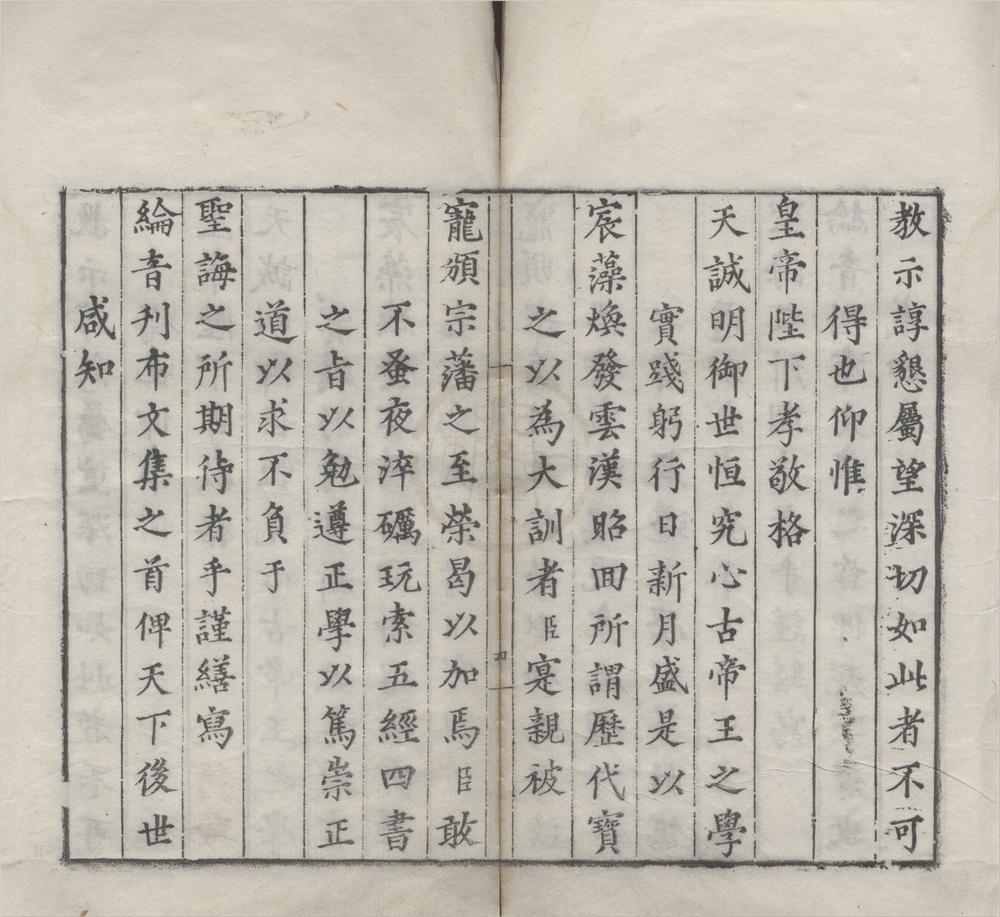 教示諄懇屬望深切如此者不可
得也仰惟
皇帝陛下孝敬格
天誠明御世恒究心古帝王之學
實踐躬行日新月盛是以
宸藻煥發雲漢昭回所謂歷代寶
之以為大訓者臣寔親被
寵頒宗藩之至榮曷以加焉臣敢
不蚤夜淬礪玩索五經四書
之旨以勉遵正學以篤崇正
道以求不負于
聖誨之所期待者乎謹繕寫
綸音刊布文集之首俾天下後世
咸知